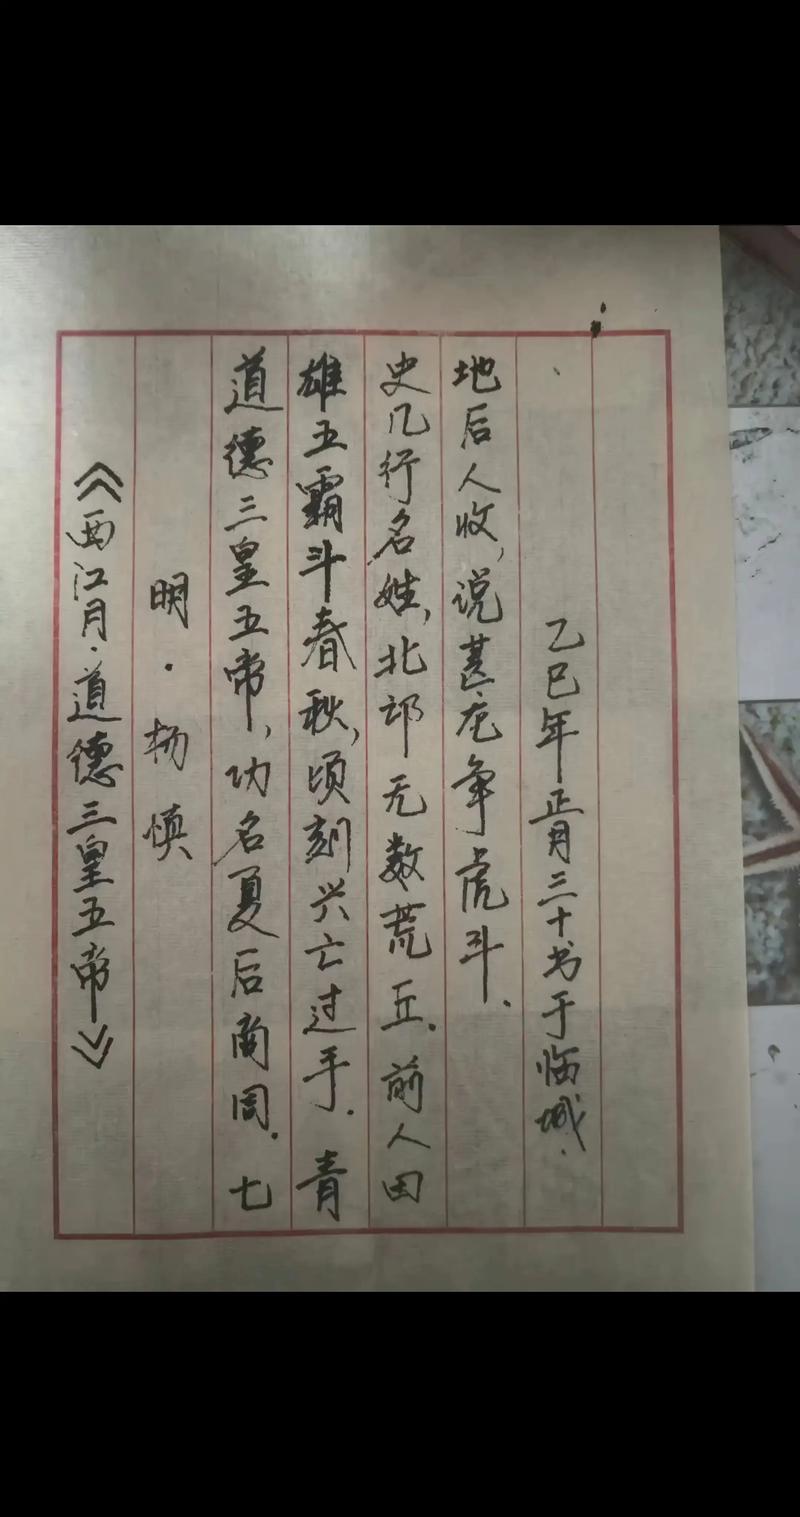 《西江月·道德三皇五帝》
明·杨慎
道德三皇五帝,功名夏后商周.七
雄五霸斗春秋,顷刻兴亡过手.青
史几行名姓,北邙无数荒丘.前人田
地后人收,说甚龙争虎斗.
乙巳年正月三十书于临城.